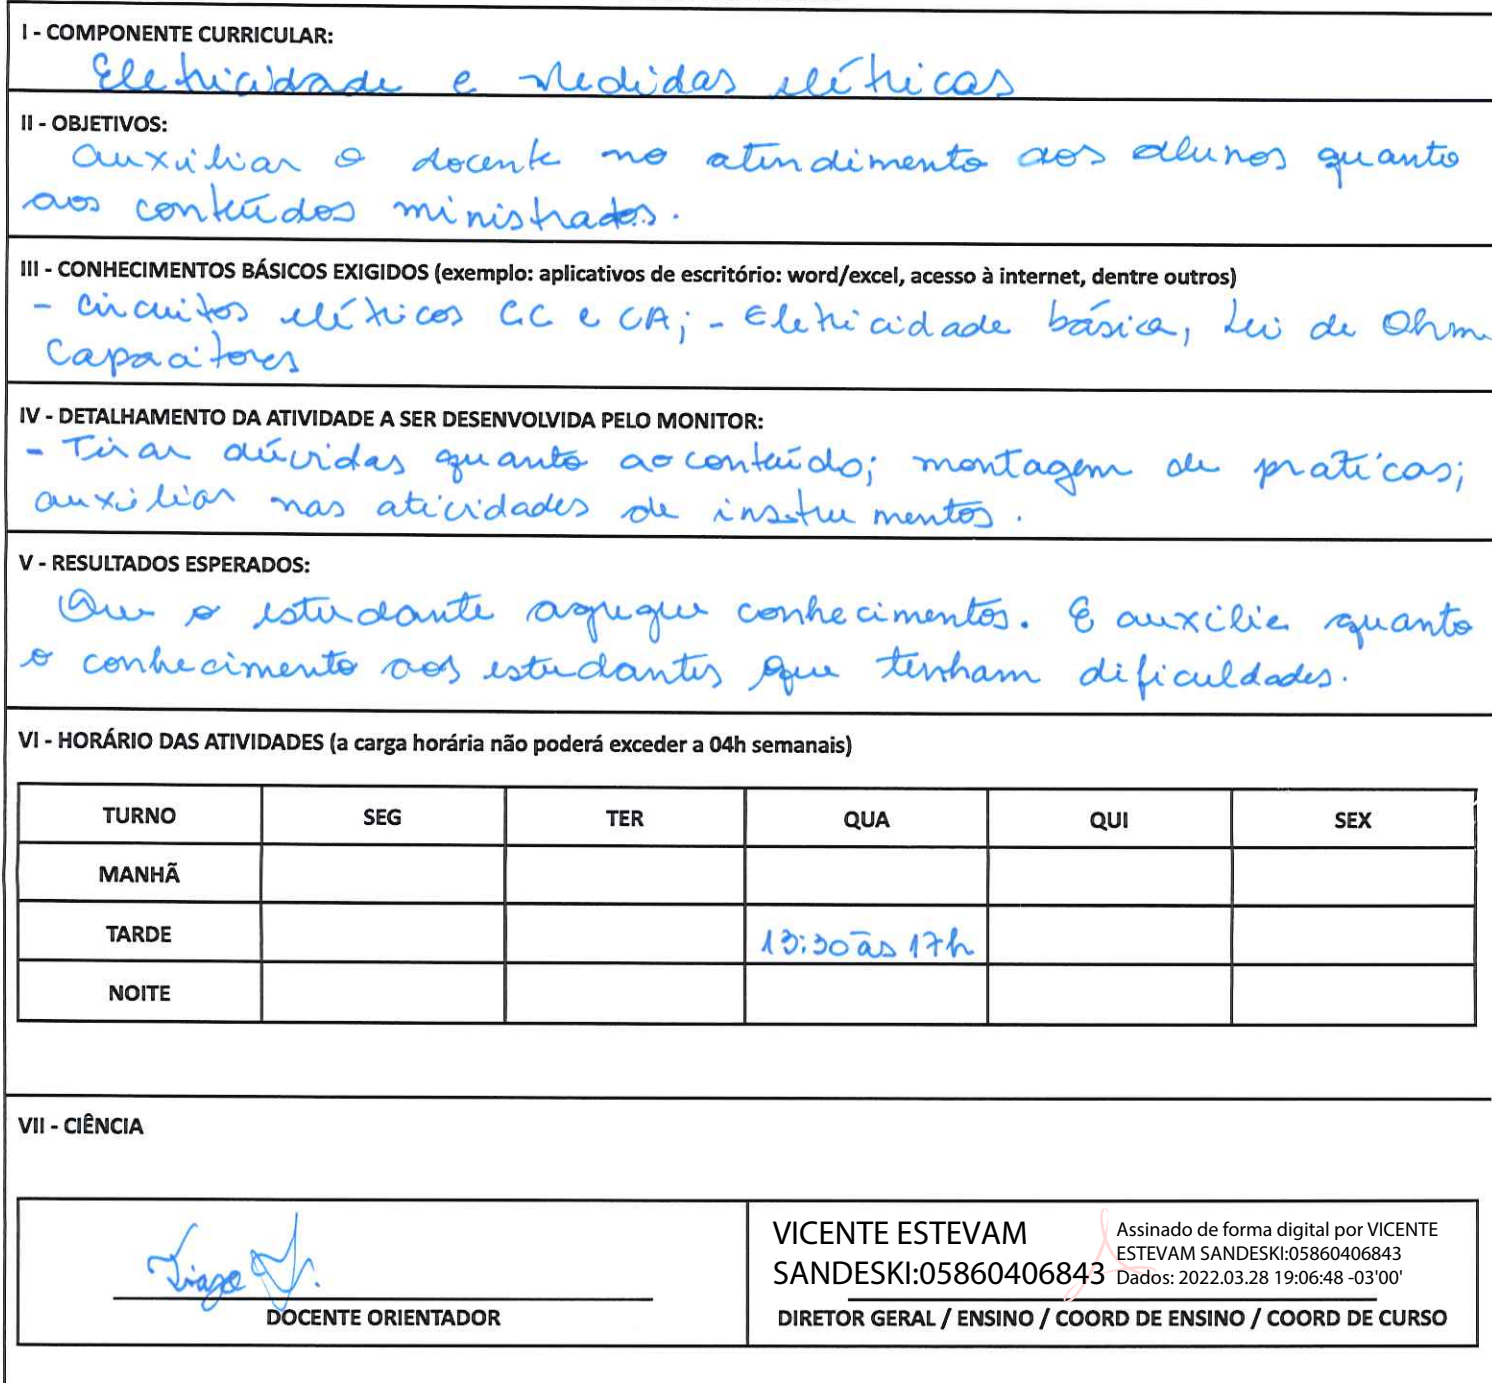 I - COMPONENTE CURRICULAR:
Eletricidade e Medidas elétricas
II - OBJETIVOS:
auxiliar o docente no atendimento aos alunos quanto
aos conteúdos ministrados.
III - CONHECIMENTOS BÁSICOS EXIGIDOS (exemplo: aplicativos de escritório: word/excel, acesso à internet, dentre outros)
- Circuitos elétricos CC e CA; - Eletricidade básica, Lei de Ohm
Capacitores
IV - DETALHAMENTO DA ATIVIDADE A SER DESENVOLVIDA PELO MONITOR:
- Tirar dúvidas quanto ao conteúdo; montagem de práticas;
auxiliar nas atividades de instrumentos.
V - RESULTADOS ESPERADOS:
Que o estudante agregue conhecimentos. E auxilie quanto
o conhecimento aos estudantes que tenham dificuldades.
VI - HORÁRIO DAS ATIVIDADES (a carga horária não poderá exceder a 04h semanais)
TURNO SEG TER QUA QUI SEX
MANHÃ
TARDE 13:30 às 17h
NOITE
VII - CIÊNCIA
VICENTE ESTEVAM
SANDESKI:05860406843
Assinado de forma digital por VICENTE
ESTEVAM SANDESKI:05860406843
Dados: 2022.03.28 19:06:48 -03'00'
Tiago
DOCENTE ORIENTADOR
DIRETOR GERAL / ENSINO / COORD DE ENSINO / COORD DE CURSO